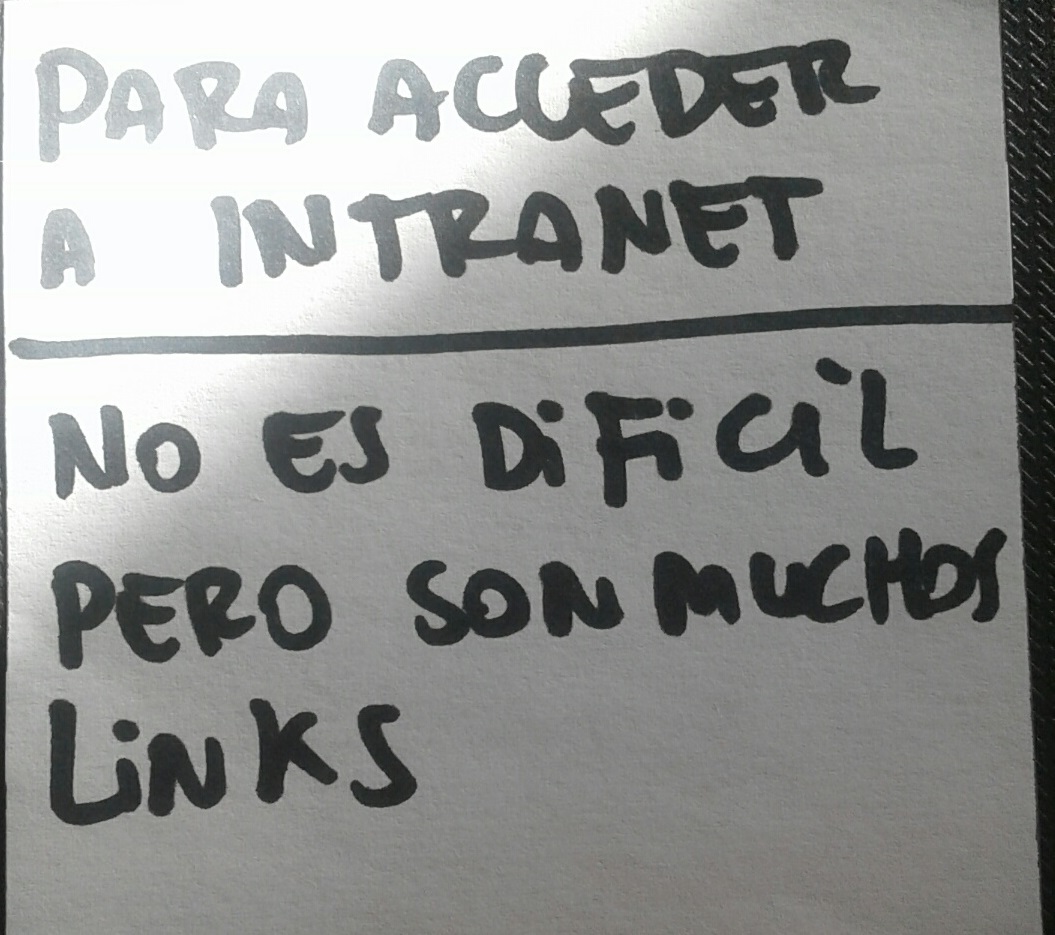 PARA ACCEDER
A INTRANET
NO ES DiFiCiL
PERO SON MUCHOS
LiNKS